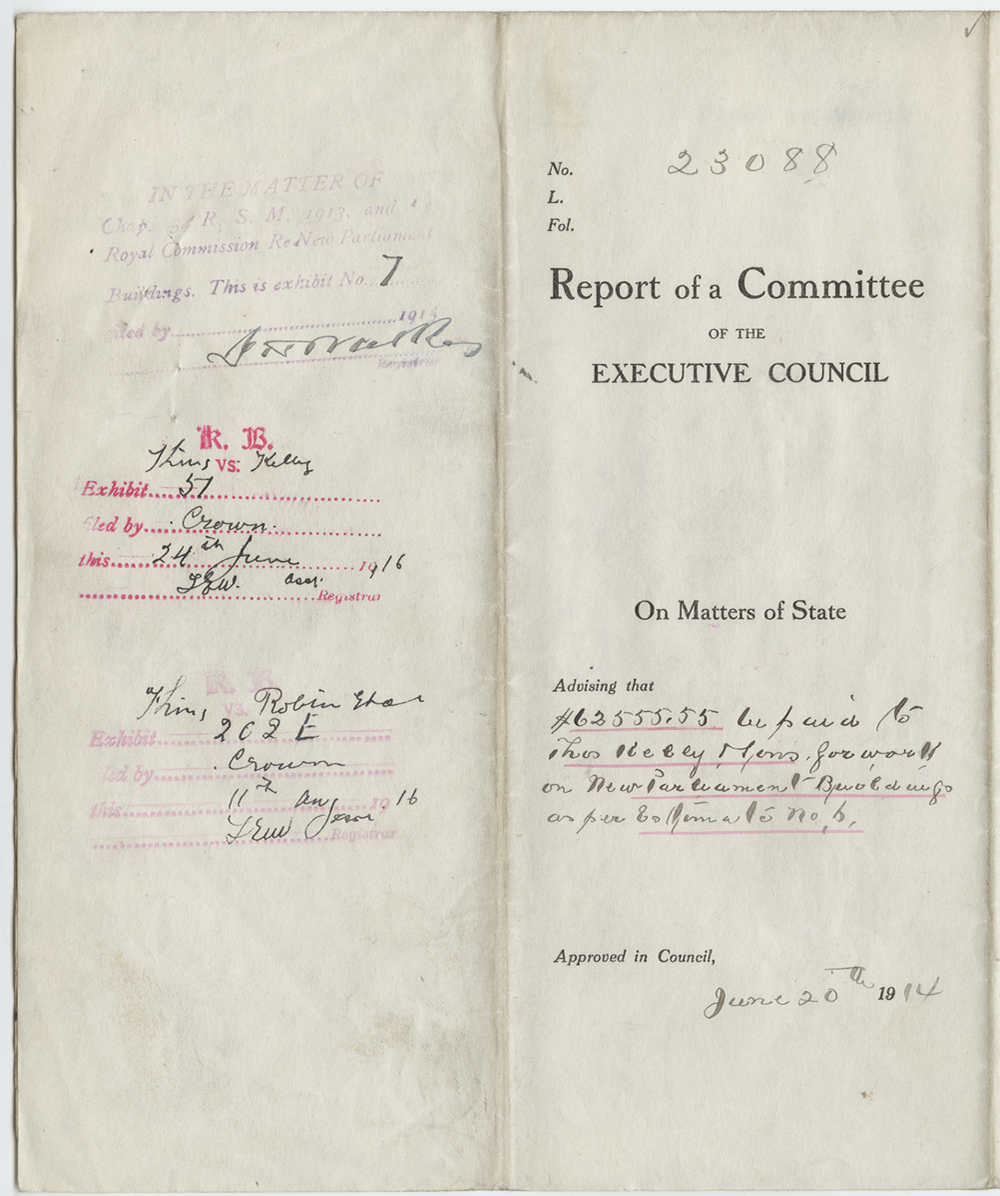 IN THE MATTER OF
Chap. R. S. M. 1913, and
Royal Commission Re New Parliament
Buildings. This is exhibit No. 7
filed by 191
Registrar
K. B.
King vs. Kelly
Exhibit 51
filed by Crown.
this 24th June 1916
LEW. Registrar
K. B.
King, vs. Robin
Exhibit 202 E
filed by Crown
this 11th Aug 1916
LEW Registrar
No. 23088
L.
Fol.
Report of a Committee
OF THE
EXECUTIVE COUNCIL
On Matters of State
Advising that
$62555.55 be paid to
Thos Kelly & Sons, for work
on New Parliament Buildings
as per Estimate No.
Approved in Council,
June 20th 1914